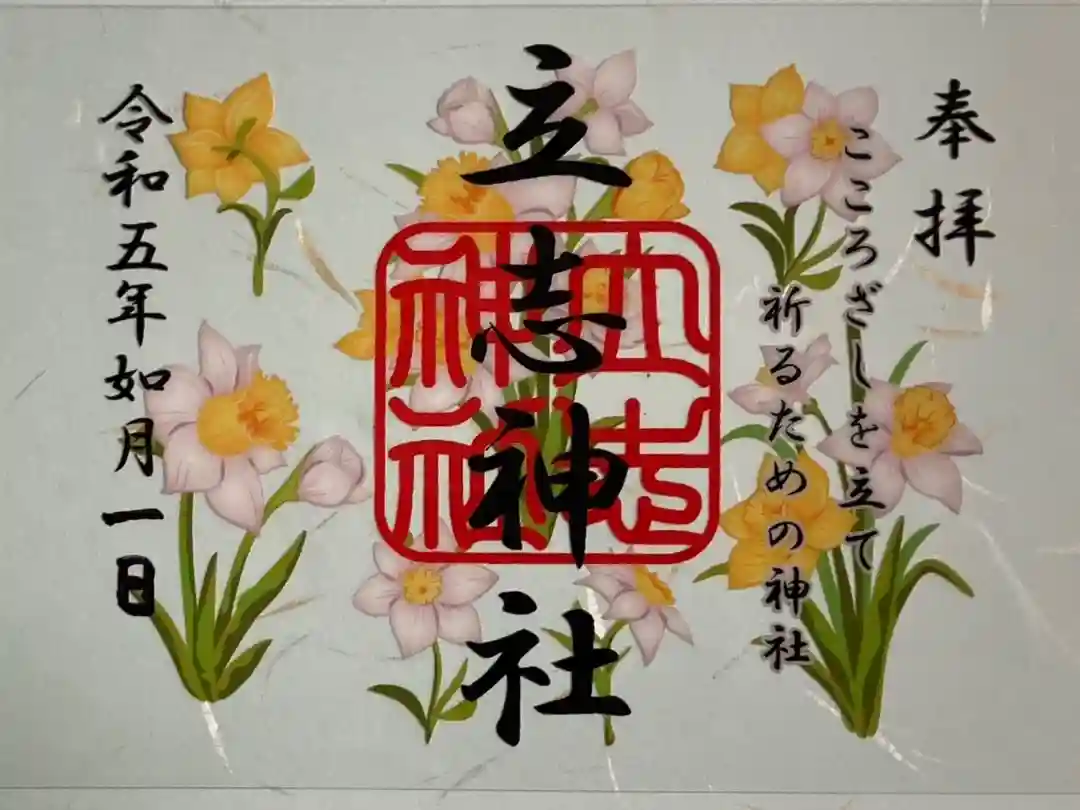 奉拝
こころざしを立て
祈るための神社
立志神社
立志神社
令和五年如月一日